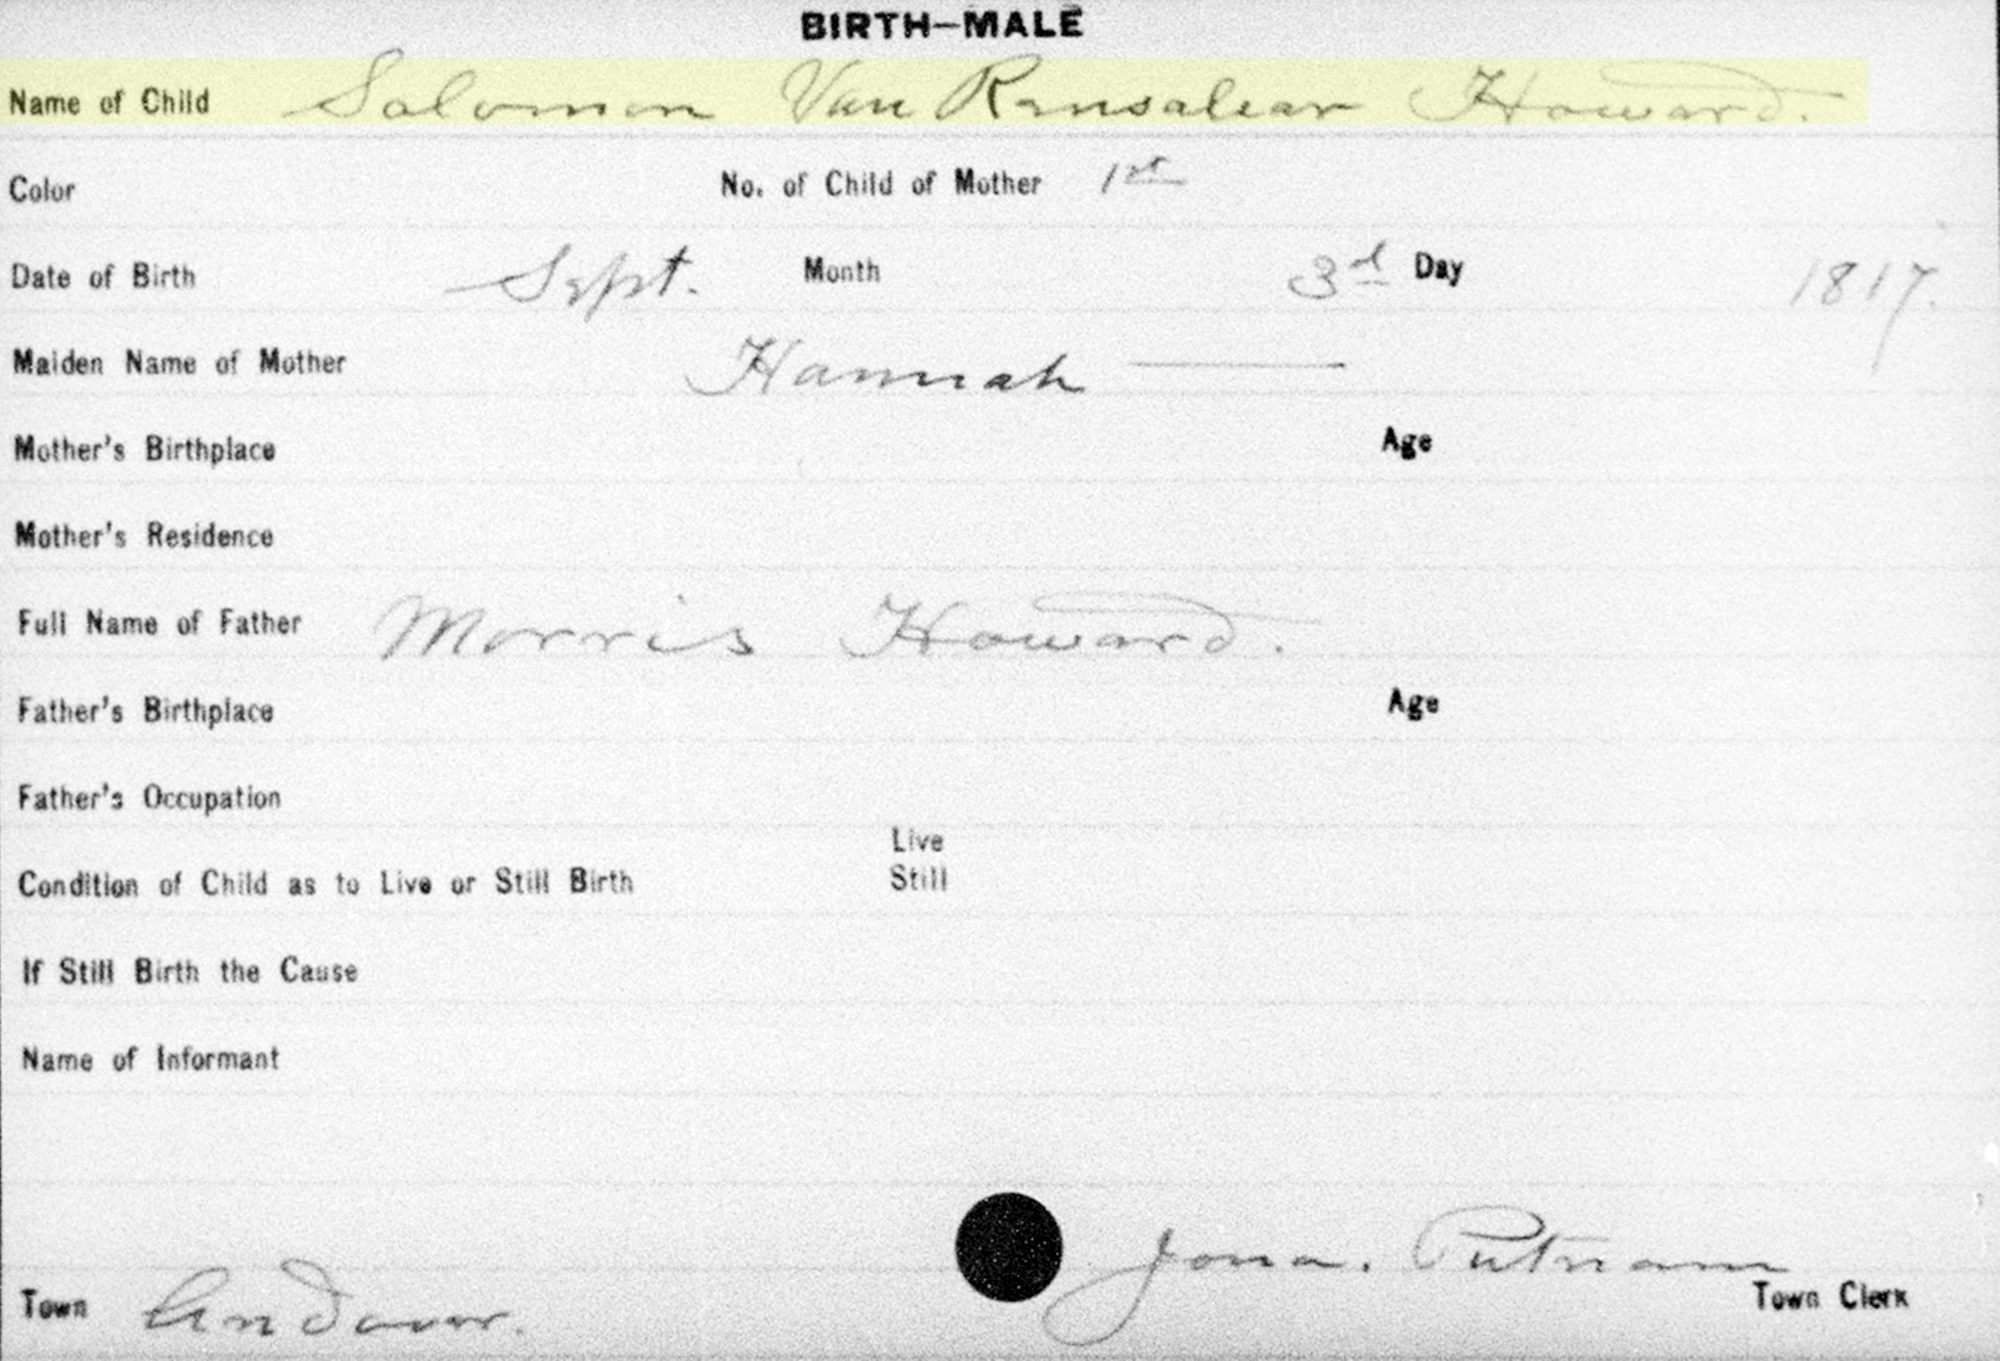 BIRTH—MALE
Name of Child Solomon Van Rensalear Howard.
Color No. of Child of Mother 1st
Date of Birth Sept. Month 3d Day 1817.
Maiden Name of Mother Hannah ———
Mother's Birthplace Age
Mother's Residence
Full Name of Father Morris Howard.
Father's Birthplace Age
Father's Occupation
Live
Condition of Child as to Live or Still Birth Still
If Still Birth the Cause
Name of Informant
Jona. Putnam
Town Andover. Town Clerk